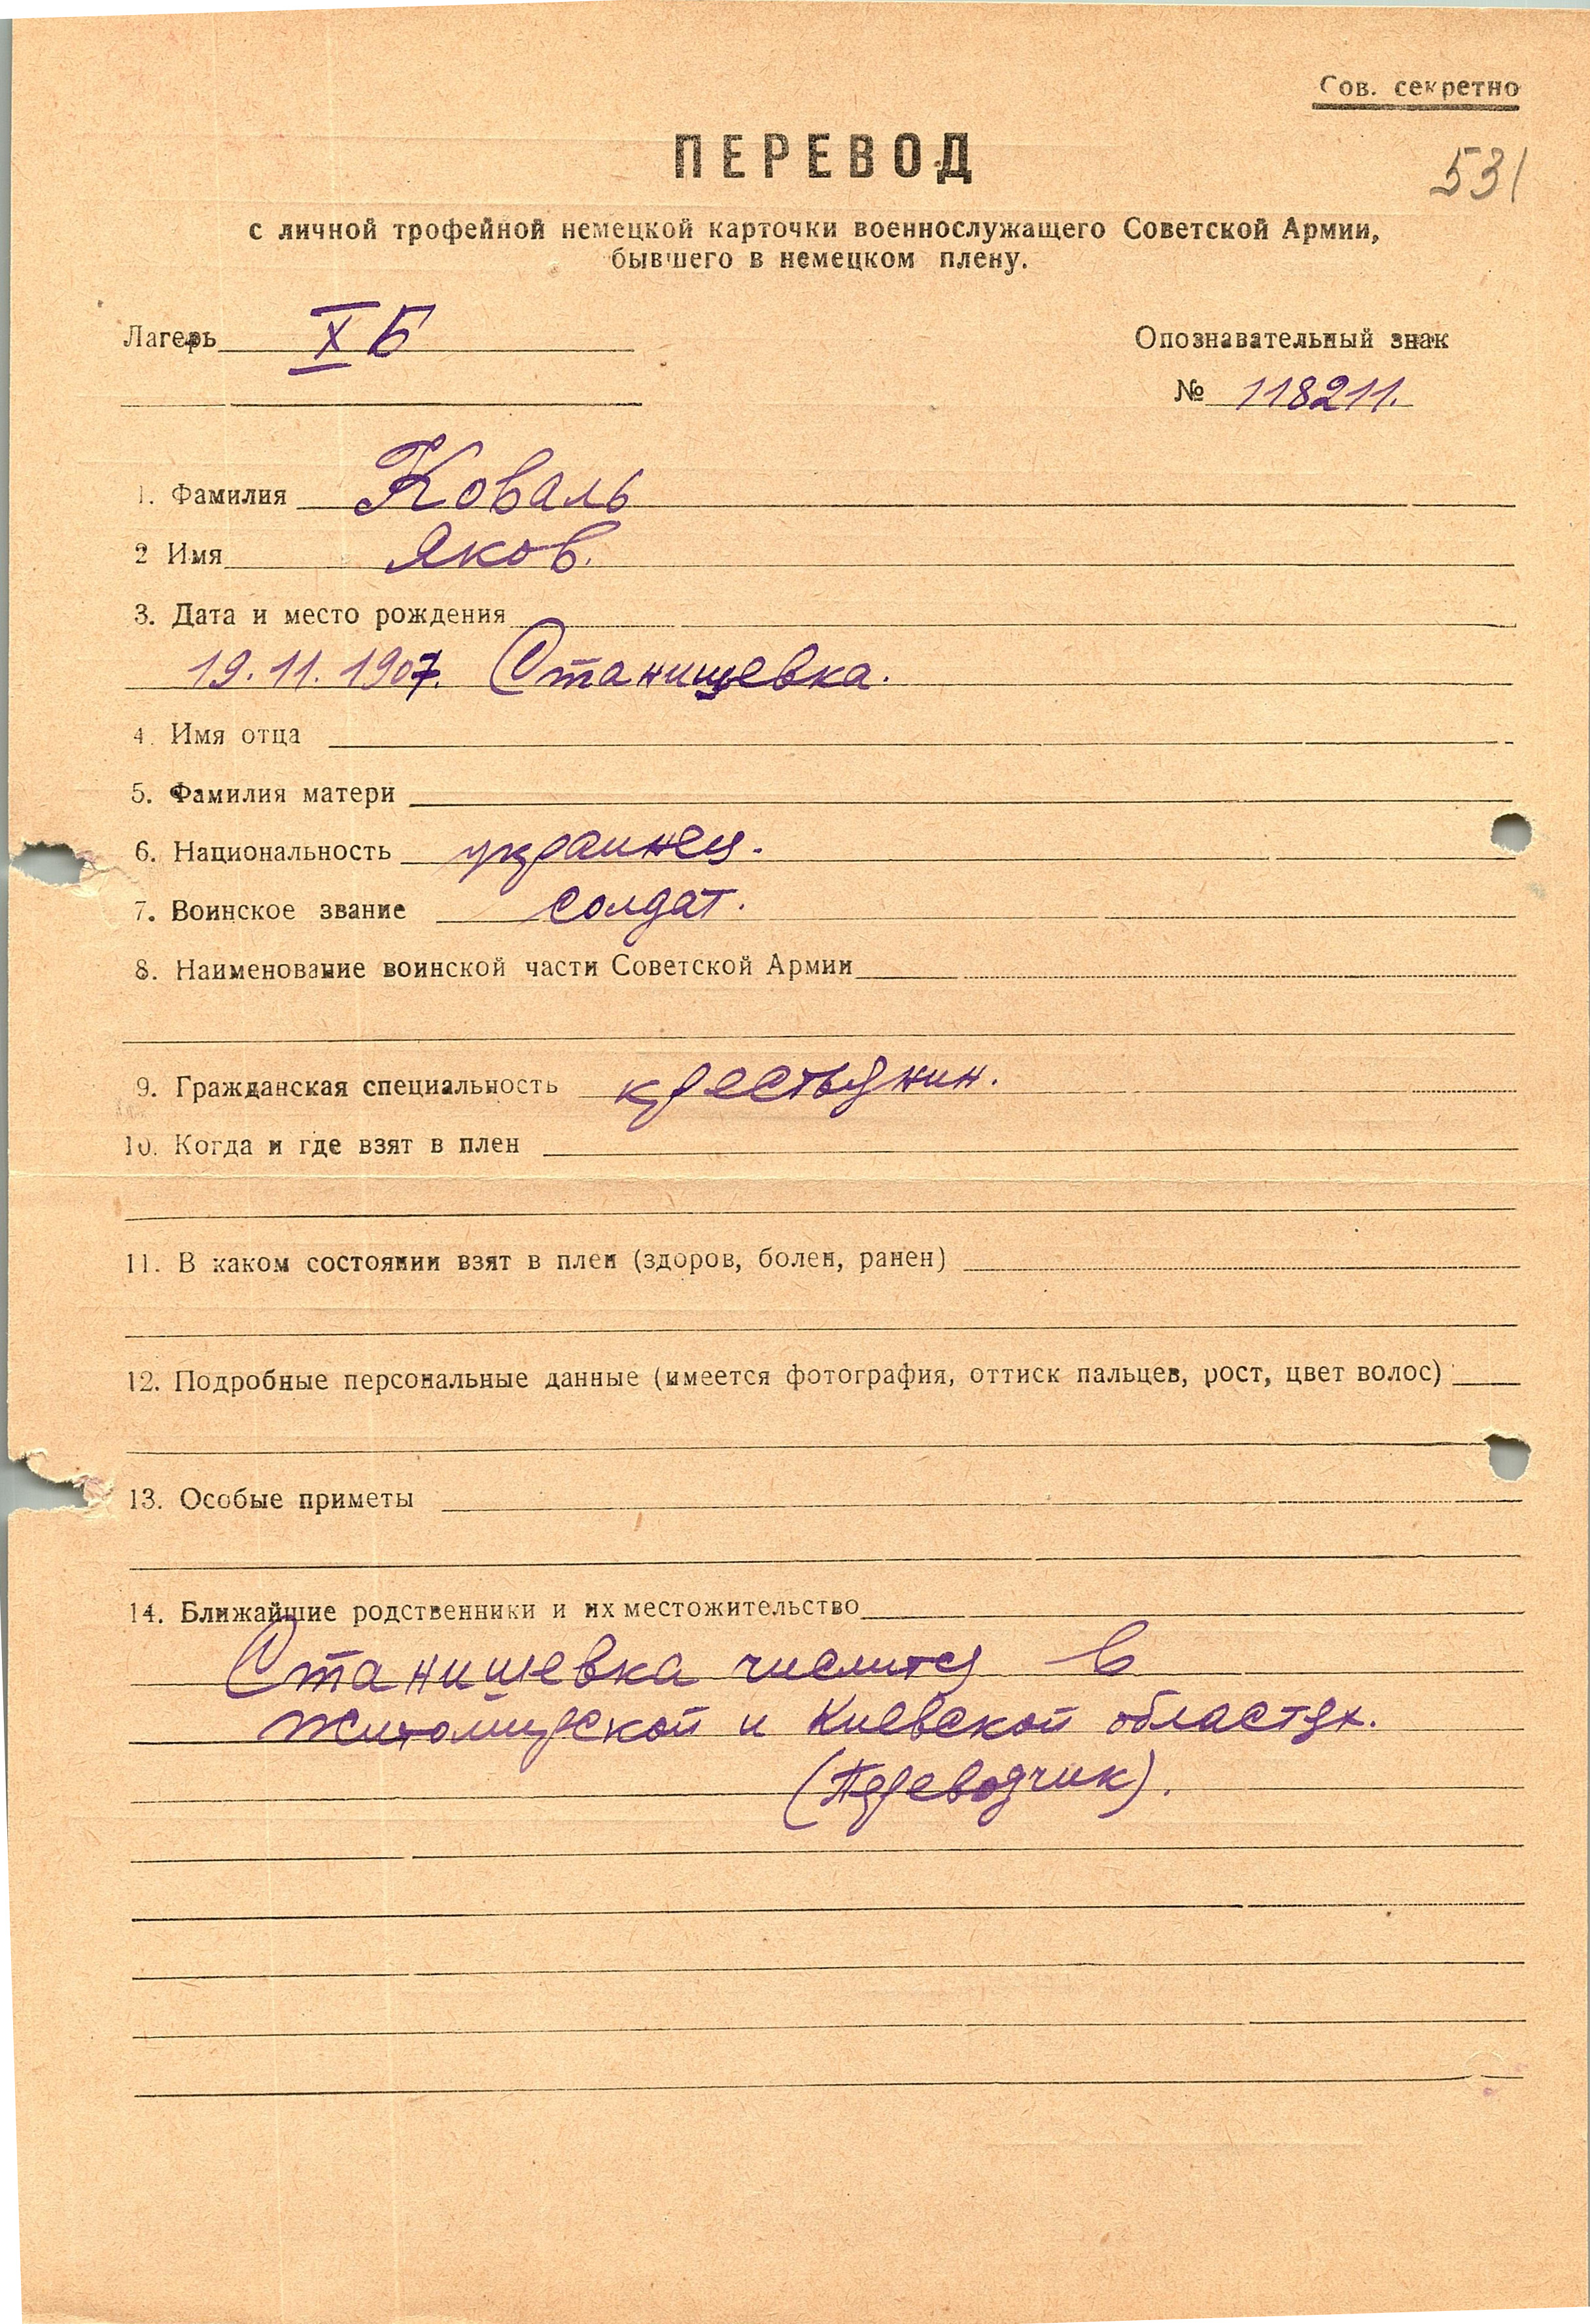 Сов. секретно
ПЕРЕВОД
531
с личной трофейной немецкой карточки военнослужащего Советской Армии,
бывшего в немецком плену.
Лагерь X Б
Опознавательный знак
№ 118211.
1. Фамилия Коваль
2 Имя Яков.
3. Дата и место рождения
19.11.1907. Станишевка.
4. Имя отца
5. Фамилия матери
6. Национальность украинец.
7. Воинское звание солдат.
8. Наименование воинской части Советской Армии
9. Гражданская специальность крестьянин.
10. Когда и где взят в плен
11. В каком состоянии взят в плен (здоров, болен, ранен)
12. Подробные персональные данные (имеется фотография, оттиск пальцев, рост, цвет волос)
13. Особые приметы
14. Ближайшие родственники и их местожительство
Станишевка числится в
Житомирской и Киевской областях.
(Переводчик).